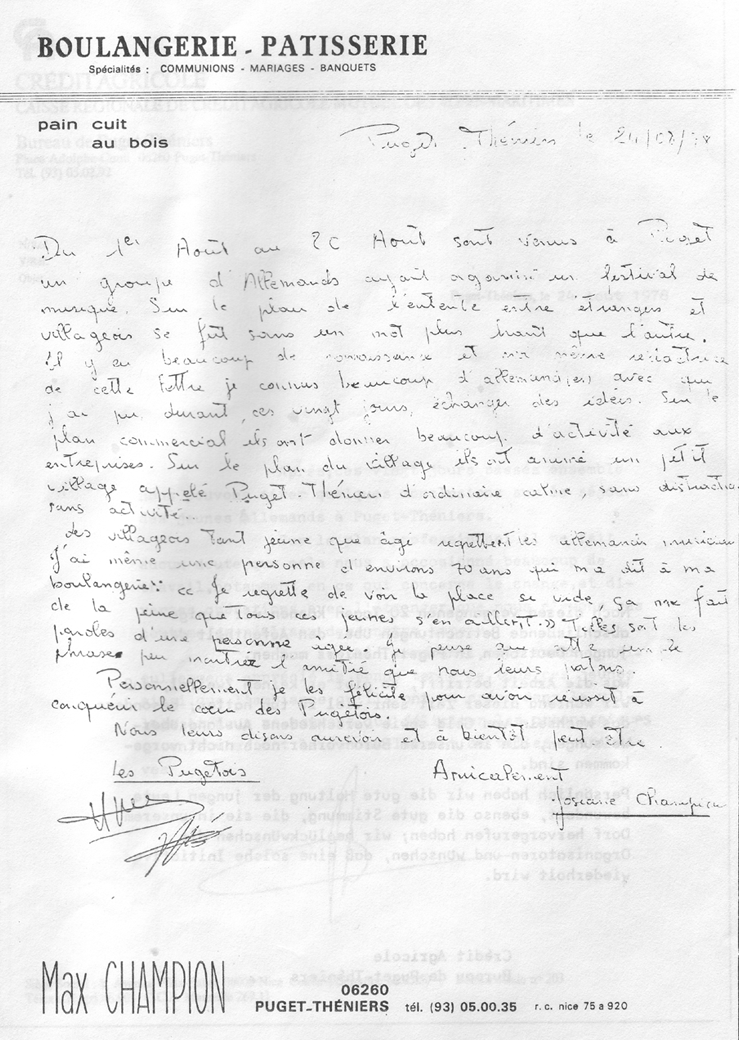 BOULANGERIE - PATISSERIE
Spécialités : COMMUNIONS - MARIAGES - BANQUETS
pain cuit
au bois
Puget Théniers le 24/08/78
Du 1er Août au 20 Août sont venus à Puget
un groupe d'Allemands ayant organisé un festival de
musique. Sur le plan de l'entente entre étrangers et
villageois se fut sans un mot plus haut que l'autre.
Il y eu beaucoup de connaissance et moi même rédactrice
de cette lettre je connus beaucoup d'allemand(es) avec qui
j'ai pu, durant, ces vingt jours, échanger des idées. Sur le
plan commercial ils ont donner beaucoup d'activité aux
entreprises. Sur le plan du village ils ont animé un petit
village appelé Puget Théniers d'ordinaire calme, sans distraction
sans activité.
des villageois tant jeune que âgé regrettent les allemands musiciens
J'ai même une personne d'environs 70 ans qui m'a dit à ma
boulangerie : << Je regrette de voir la place se vide, ça me fait
de la peine que tous ces jeunes s'en aillent. >> Telles sont les
paroles d'une personne agée. je pense que cette
phrase peu montrée l'amitié que nous leurs
Personnellement je les félicite pour avoir réussit à
conquerir le cœur des Pugetois.
Nous leurs disons aurevoir et à bientôt peut être.
Les Pugetois
Amicalement
Josiane Champion
Max CHAMPION
06260
PUGET-THÉNIERS tél. (93) 05.00.35 r.c. nice 75 a 920